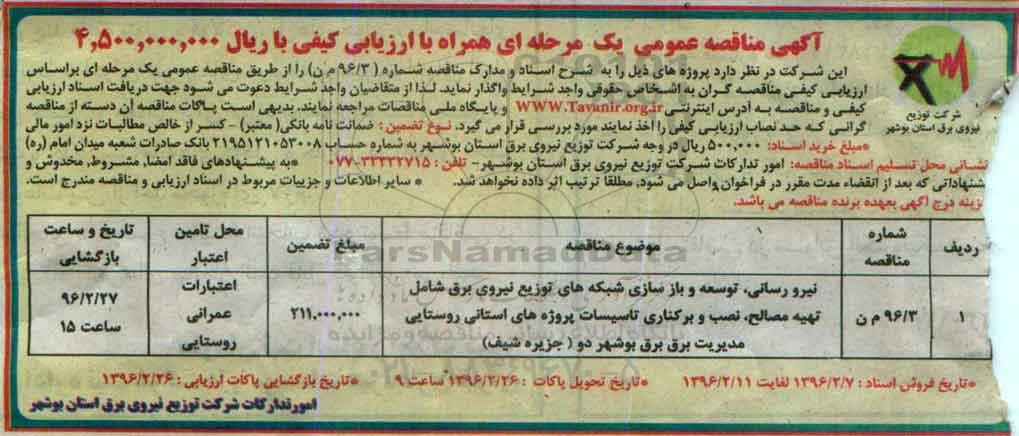 آگهی مناقصه عمومی یک مرحله ای همراه با ارزیابی کیفی با ریال ۴,۵۰۰,۰۰۰,۰۰۰
این شرکت در نظر دارد پروژه های ذیل را به شرح اسناد و مدارک مناقصه شماره (۹۶/۳ م ن) را از طریق مناقصه عمومی یک مرحله ای براساس
ارزیابی کیفی مناقصه گران به اشخاص حقوقی واجد شرایط واگذار نماید. لذا از متقاضیان واجد شرایط دعوت می شود جهت دریافت اسناد ارزیابی
کیفی و مناقصه به آدرس اینترنتی WWW.Tavanir.org.ir و پایگاه ملی مناقصات مراجعه نمایند. بدیهی است پاکات مناقصه آن دسته از مناقصه
گرانی که حد نصاب ارزیابی کیفی را اخذ نمایند مورد بررسی قرار می گیرد. نوع تضمین: ضمانت نامه بانکی( معتبر) - کسر از خالص مطالبات نزد امور مالی
*مبلغ خرید اسناد: ۵۰۰,۰۰۰ ریال در وجه شرکت توزیع نیروی برق استان بوشهر به شماره حساب ۲۱۹۵۱۲۱۰۵۳۰۰۸ بانک صادرات شعبه میدان امام (ره)
نشانی محل تسلیم اسناد مناقصه: امور تدارکات شرکت توزیع نیروی برق استان بوشهر- تلفن: ۳۳۳۳۲۷۱۵-۰۷۷ *به پیشنهادهای فاقد امضا, مشروط, مخدوش و
شنهاداتی که بعد از انقضاء مدت مقرر در فراخوان واصل می شود, مطلقا ترتیب اثر داده نخواهد شد. * سایر اطلاعات و جزییات مربوط در اسناد ارزیابی و مناقصه مندرج است.
زینه درج آگهی بعهده برنده مناقصه می باشد.
شرکت توزیع
نیروی برق استان بوشهر
ردیف شماره مناقصه موضوع مناقصه مبلغ تضمین محل تامین اعتبار تاریخ و ساعت بازگشایی
۱ ۹۶/۳ م ن نیرو رسانی، توسعه و باز سازی شبکه های توزیع نیروی برق شامل تهیه مصالح، نصب و برکناری تاسیسات پروژه های استانی روستایی مدیریت برق برق بوشهر دو ( جزیره شیف) ۲۱۱,۰۰۰,۰۰۰ اعتبارات عمرانی روستایی ۹۶/۲/۲۷ ساعت ۱۵
*تاریخ فروش اسناد : ۱۳۹۶/۲/۷ لغایت ۱۳۹۶/۲/۱۱ *تاریخ تحویل پاکات : ۱۳۹۶/۲/۲۶ ساعت ۹ *تاریخ بازگشایی پاکات ارزیابی : ۱۳۹۶/۲/۲۶
امورتدارکات شرکت توزیع نیروی برق استان بوشهر
ParsNamadData